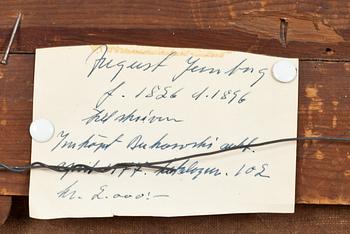 August Jernberg
f. 1826 d. 1896
helskriven
Inköpt Bukowski auk.
april 177 katalognr. 102
kr. 2.000:-